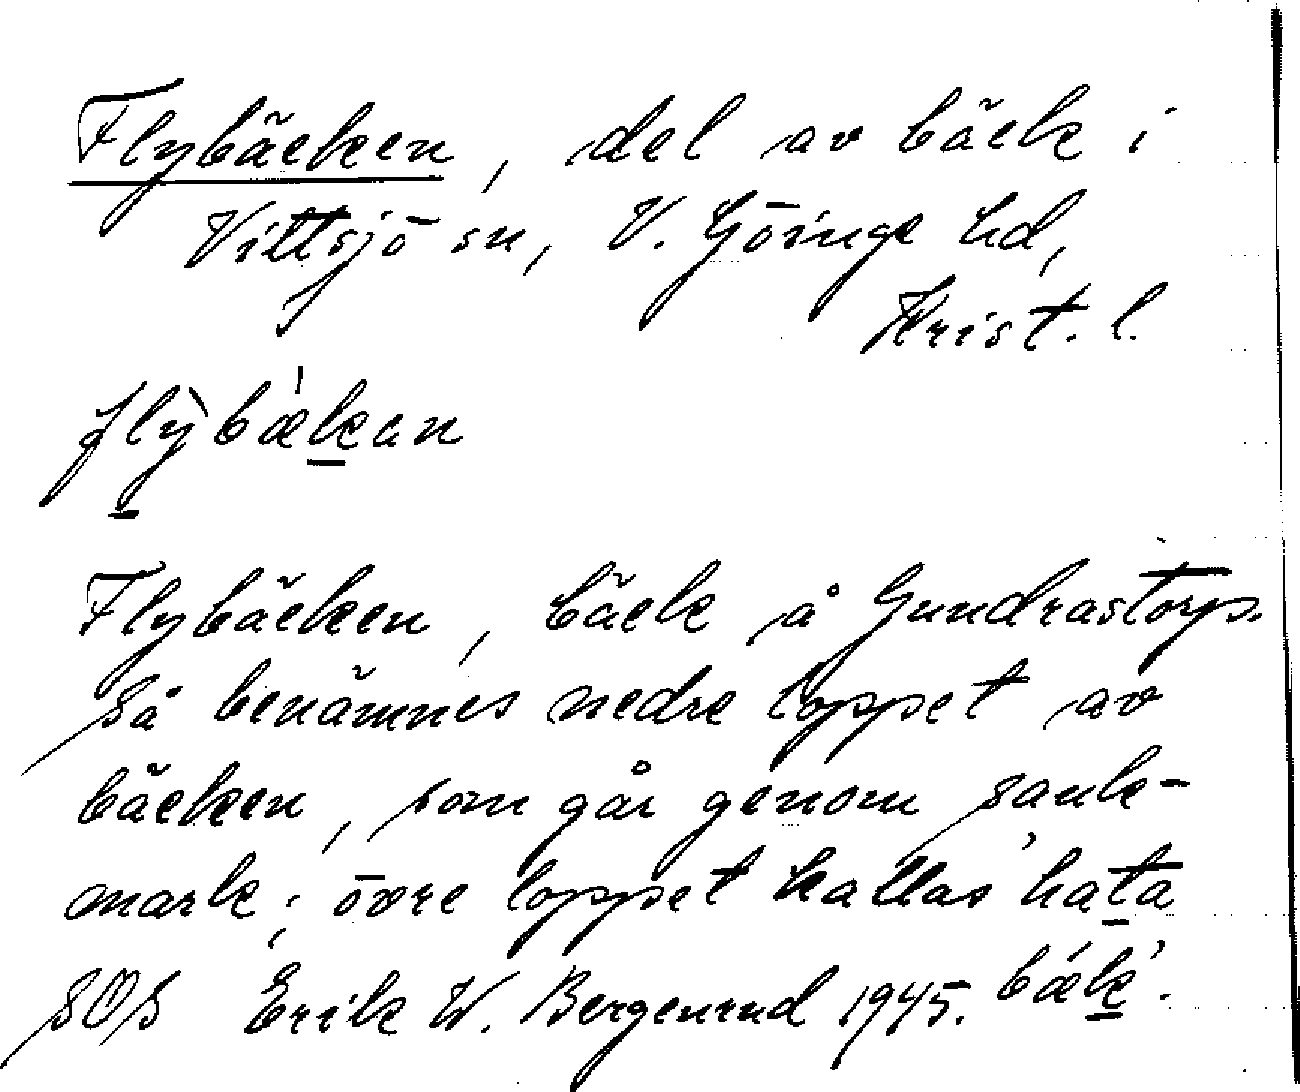 Flybäcken, del av bäck i
Vittsjö sn, V. Göinge hd,
Krist. l.
flỳbǽkan
Flybäcken, bäck å Gundrastorp.
Så benämnes nedre loppet av
bäcken, som går genom sank-
mark; övre loppet kallas 'hata
bǽk'.
SOS Erik W. Bergenrud 1945.